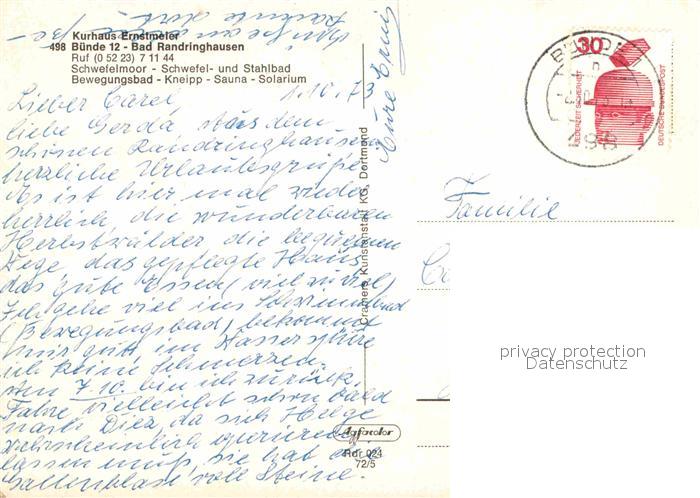 Kurhaus Ernstmeier
498 Bünde 12 - Bad Randringhausen
Ruf (0 52 23) 7 11 44
Schwefelmoor - Schwefel- und Stahlbad
Bewegungsbad - Kneipp - Sauna - Solarium
Lieber Carel 1.10.73
liebe Gerda Aus dem
schönen Randringhausen
herzliche Urlaubsgrüße
Es ist hier mal wieder
herrlich, die wunderbaren
Herbstwälder die bequemen
Wege das gepflegte Haus
das gute Essen (viel zu viel)
Ich gehe viel ins Schwimmbad
(Bewegungsbad) bekommt
mir gut, im Wasser spüre
ich keine Schmerzen.
Am 7.10. bin ich zurück.
Fahre vielleicht schon bald
nach Diez, da sich Helge
wahrscheinlich operieren
lassen muß, sie hat die
Gallenblase voll Steine.
Eure Erni
Cramers Kunstanstalt KG, Dortmund
Agfacolor
Rdr 024
72/5
30
JEDERZEIT SICHERHEIT
DEUTSCHE BUNDESPOST
Familie
privacy protection
Datenschutz